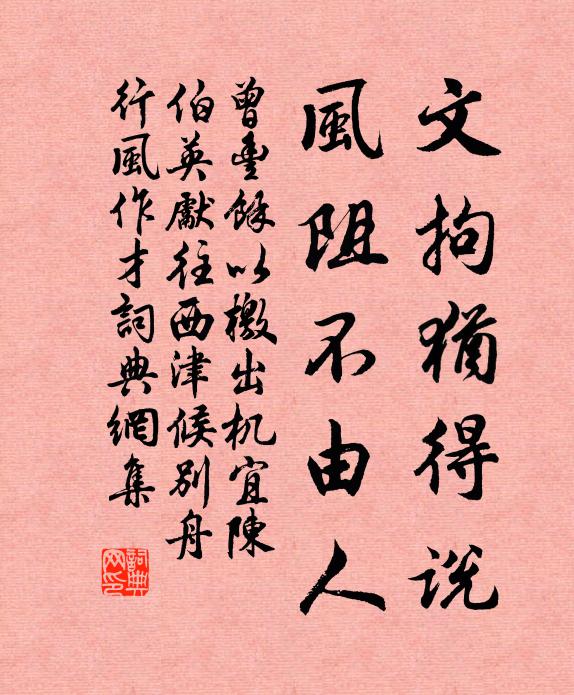 文拘猶得說
風阻不由人
曾豐餘以檄出机宜陳
伯英獻往西津候別舟
行風作才詞典網集
詞典网印